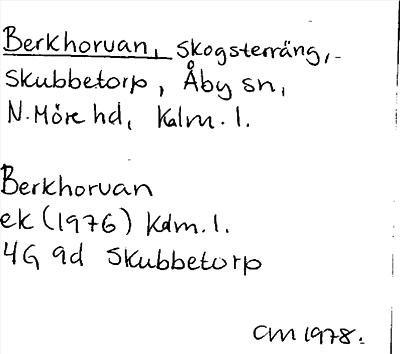 Berkhorvan, Skogsterräng,
Skubbetorp, Åby sn,
N. Möre hd, Kalm. l.
Berkhorvan
ek (1976) Kalm. l.
4G 9d Skubbetorp
CM 1978.